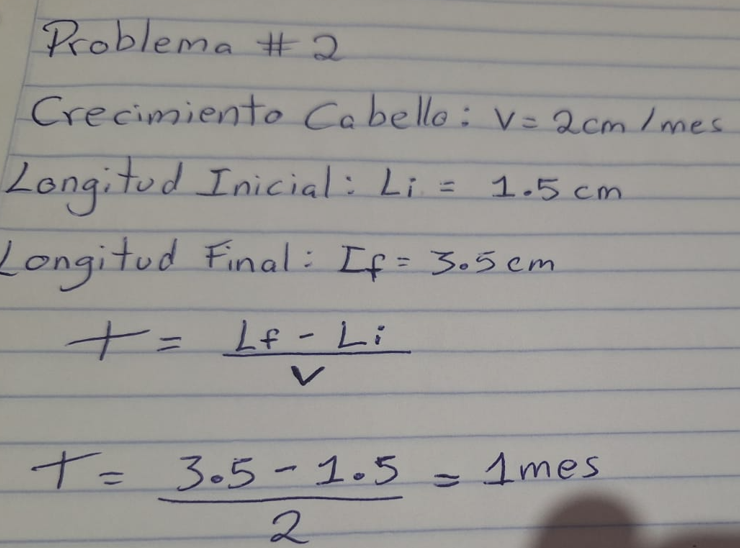 Problema # 2
Crecimiento Cabello: V = 2cm/mes
Longitud Inicial: Li = 1.5 cm
Longitud Final: Lf = 3.5 cm
t = Lf - Li / V
t = 3.5 - 1.5 / 2 = 1mes